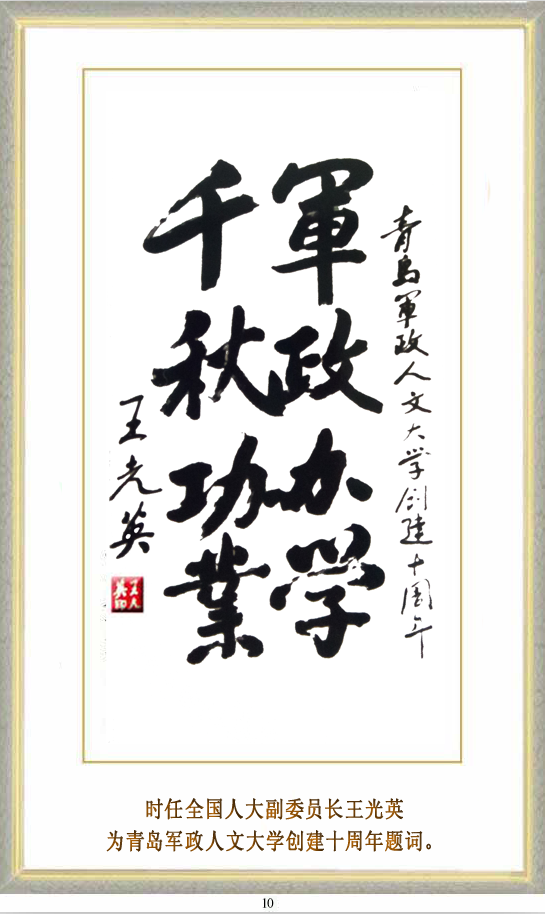 青島軍政人文大学创建十周年
軍政办学
千秋功業
王光英
王光
英印
时任全国人大副委员长王光英
为青岛军政人文大学创建十周年题词。
10